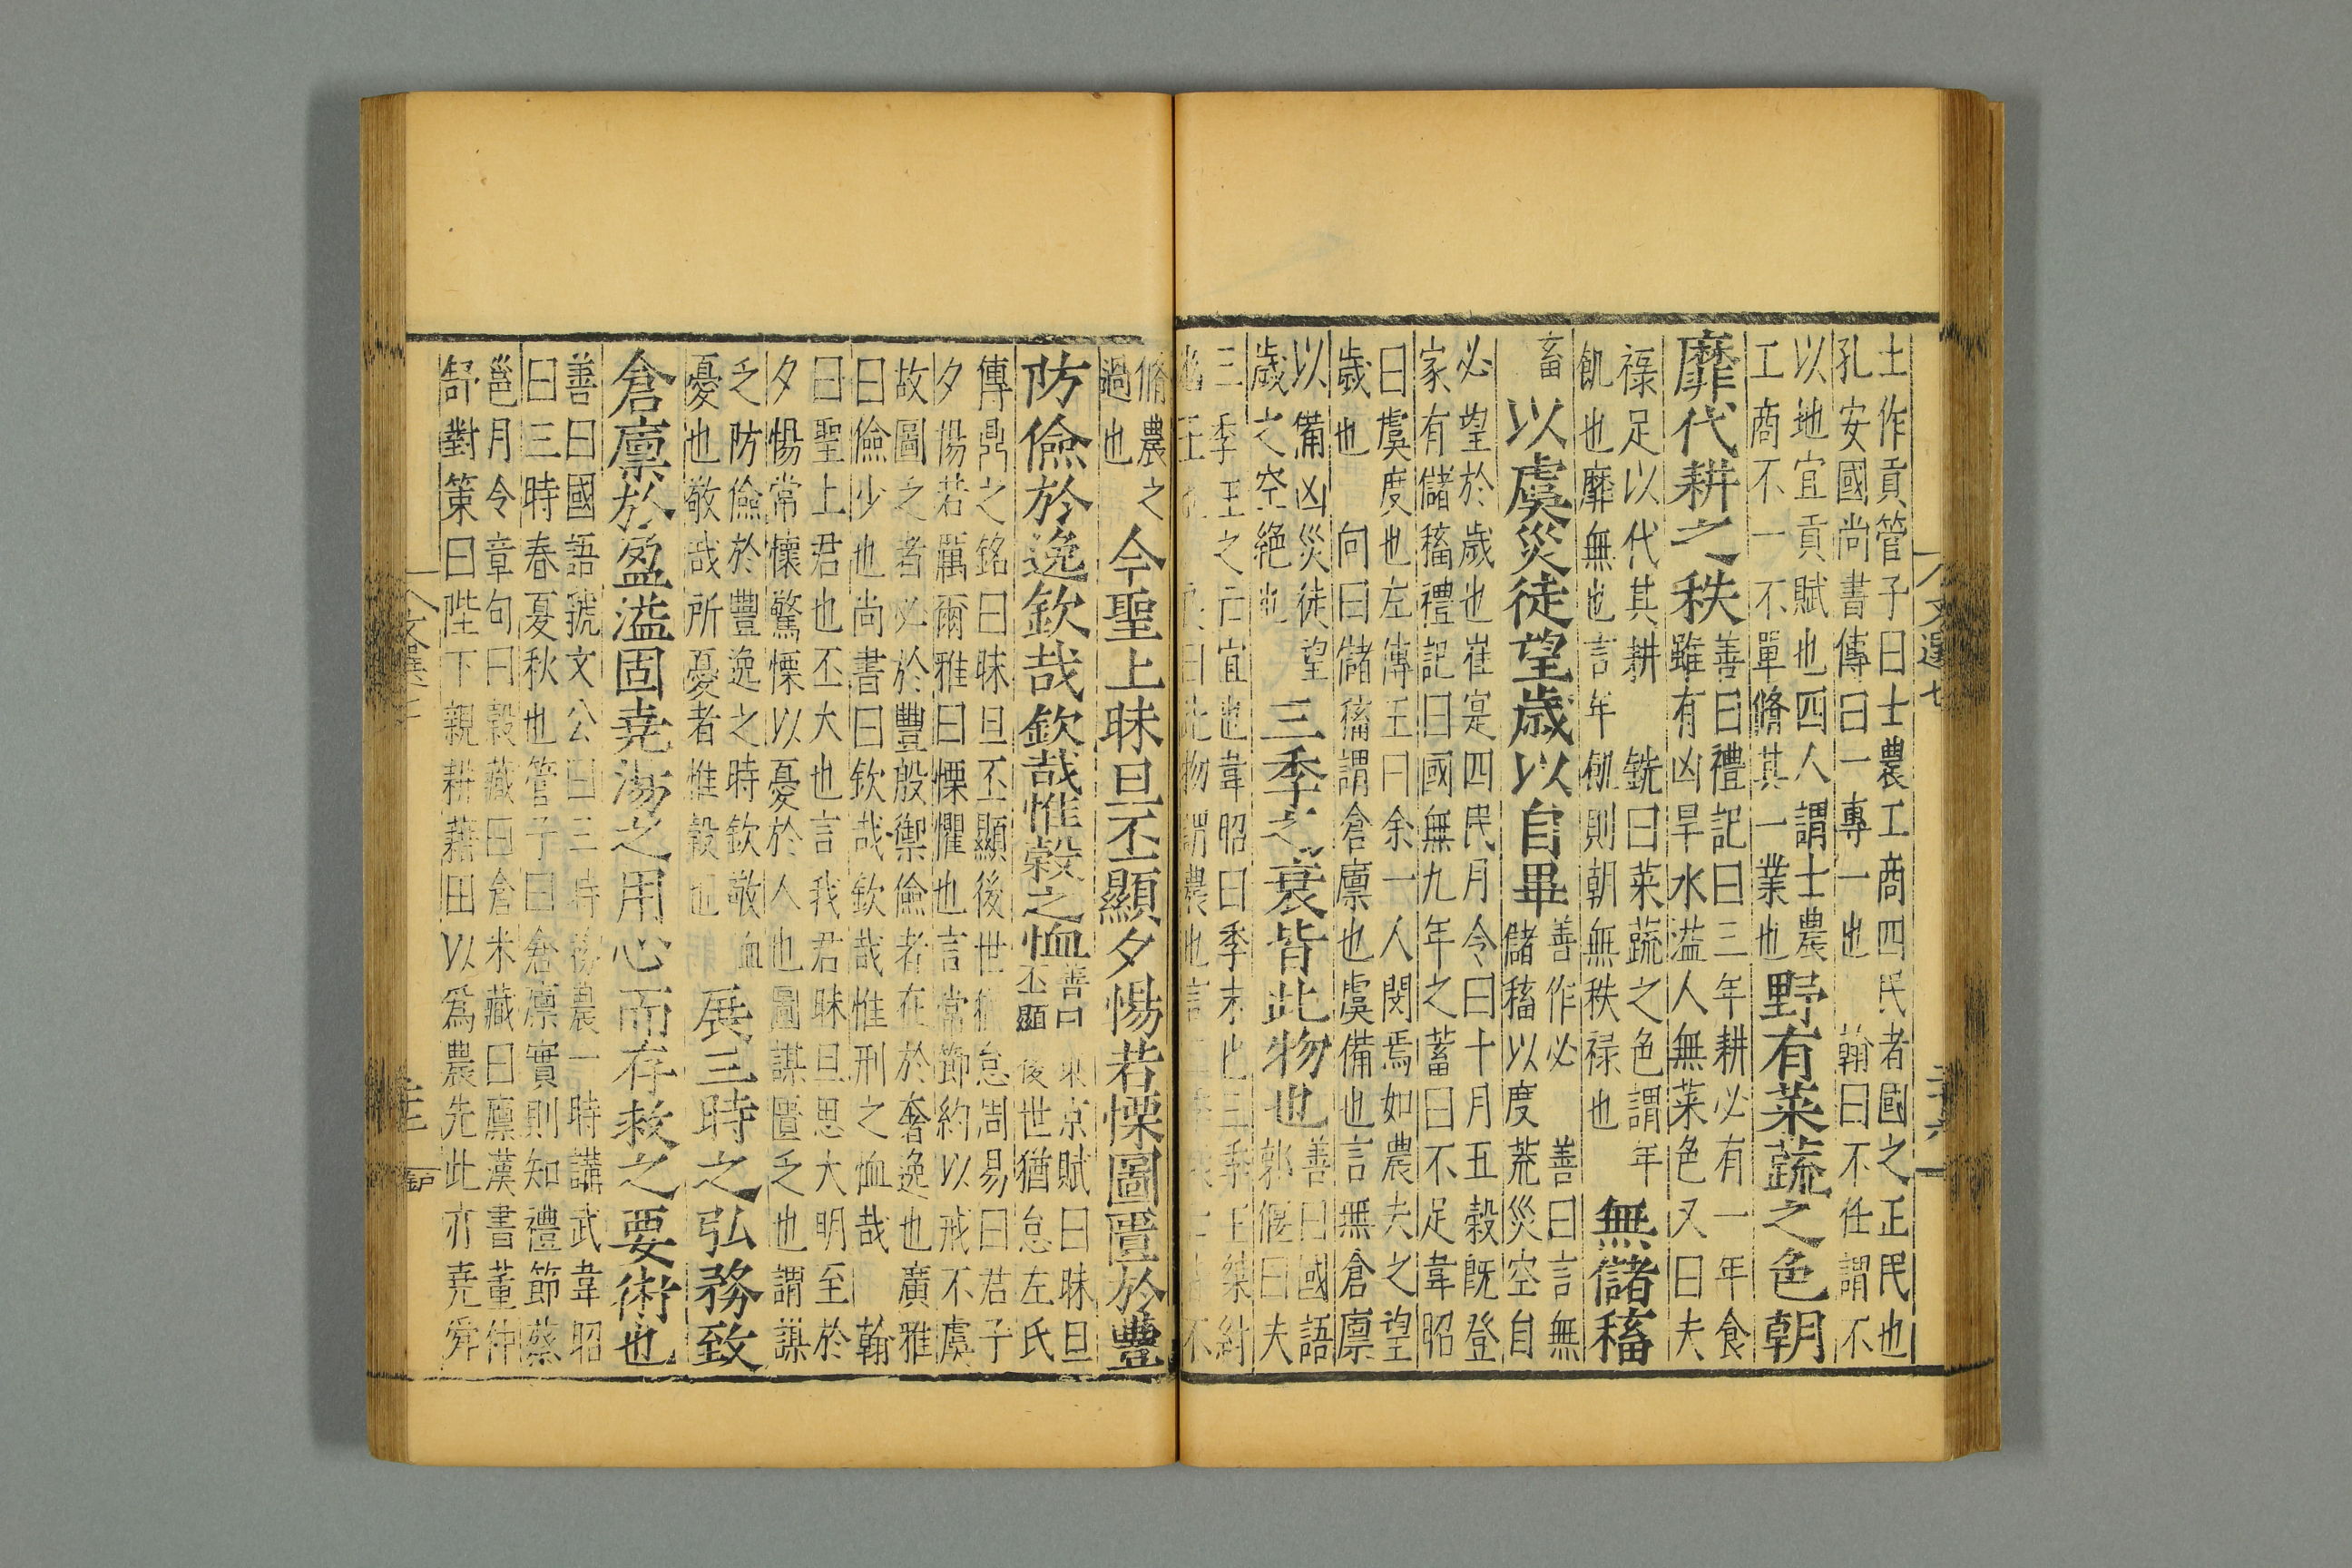 土作貢管子曰士農工商四民者國之正民也
孔安國尚書傳曰一專一也　翰曰不任謂不
以地宜貢賦也四人謂士農
工商不一不單脩其一業也
野有菜蔬之色朝
靡代耕之秩
善曰禮記曰三年耕必有一年食
雖有凶旱水溢人無菜色又曰夫
禄足以代其耕　銑曰菜蔬之色謂年
飢也靡無也言年䘏則朝無秩禄也
無儲稸
畜
以虞災徒望歲以自畢
善作必　善曰言無
儲稸以度荒災空自
必望於歲也崔寔四民月令曰十月五穀旣登
家有儲稸禮記曰國無九年之蓄曰不足韋昭
曰虞度也左傳王曰余一人閔焉如農夫之望
歲也　向曰儲稸謂倉廪也虞備也言無倉廪
以備凶災徒望
歲之空絕也
三季之衰皆此物也
善曰國語
郭偃曰夫
三季王之亡宜也韋昭曰季末也三季王桀紂
幽王也　良曰此物謂農也言
文選七
二十六
脩農之
過也
今聖上昧旦丕顯夕惕若慄圖匱於豐
防儉於逸欽哉欽哉惟穀之恤
善曰東京賦曰昧旦
丕顯後世猶怠左氏
傳鼎之銘曰昧旦丕顯後世猶怠周易曰君子
夕惕若厲爾雅曰慄懼也言常節約以戒不虞
故圖之者必於豐殷禦儉者在於奢逸也廣雅
曰儉少也尚書曰欽哉欽哉惟刑之恤哉　翰
曰聖上君也丕大也言我君昧旦思大明至於
夕惕常懷驚慄以憂於人也圖謀匱乏也謂謀
乏防儉於豐逸之時欽敬恤
憂也敬哉所憂者惟穀也
展三時之弘務致
倉廪於盈溢固堯湯之用心而存救之要術也
善曰國語虢文公曰三時務農一時講武韋昭
曰三時春夏秋也管子曰倉廪實則知禮節蔡
邕月令章句曰穀藏曰倉米藏曰廪漢書董仲
舒對策曰陛下親耕藉田以爲農先此亦堯舜